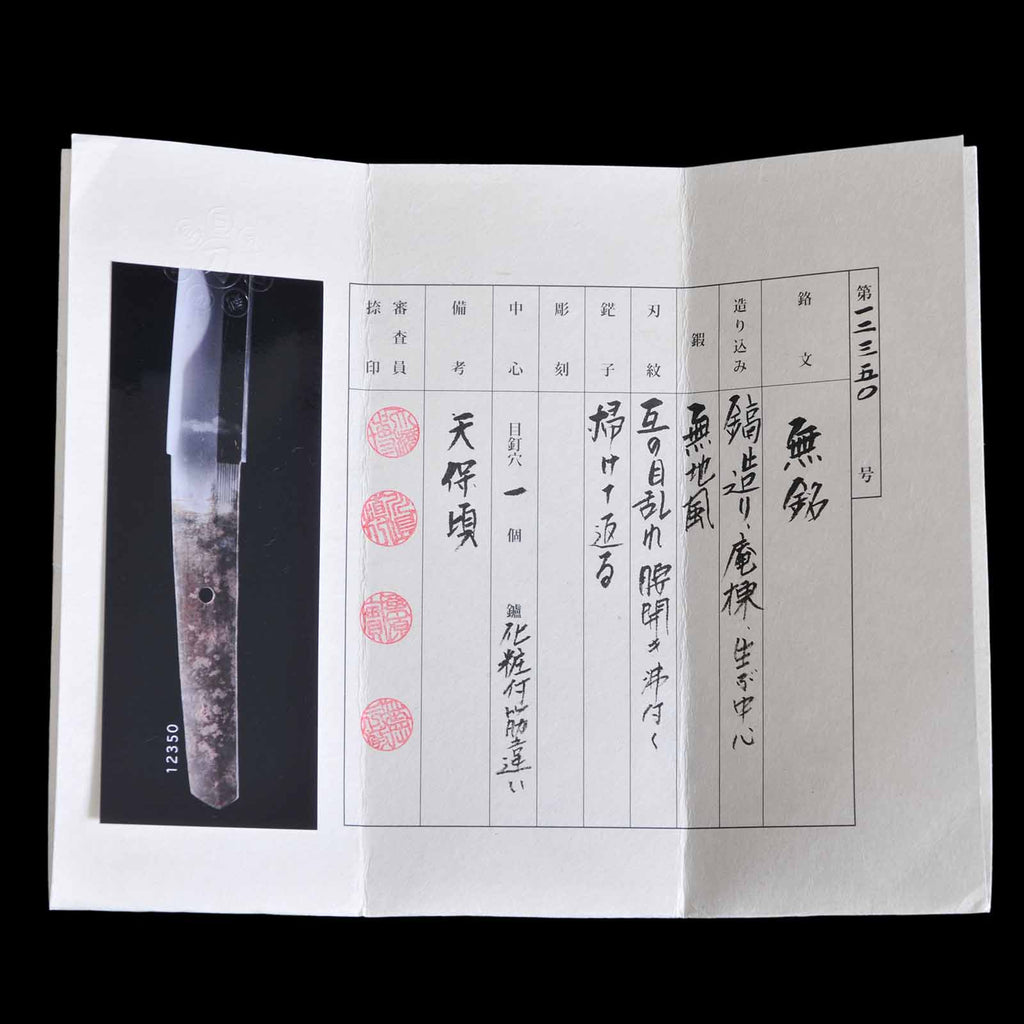 第一二三五〇号
銘文
無銘
造り込み
鎬造り、庵棟、生ぶ中心
鍛
無地風
刃紋
互の目乱れ 匂開き沸付く
鋩子
掃けて返る
彫刻
中心
目釘穴 一 個
鑢 化粧付筋違い
備考
天保頃
審査員
捺印
12350